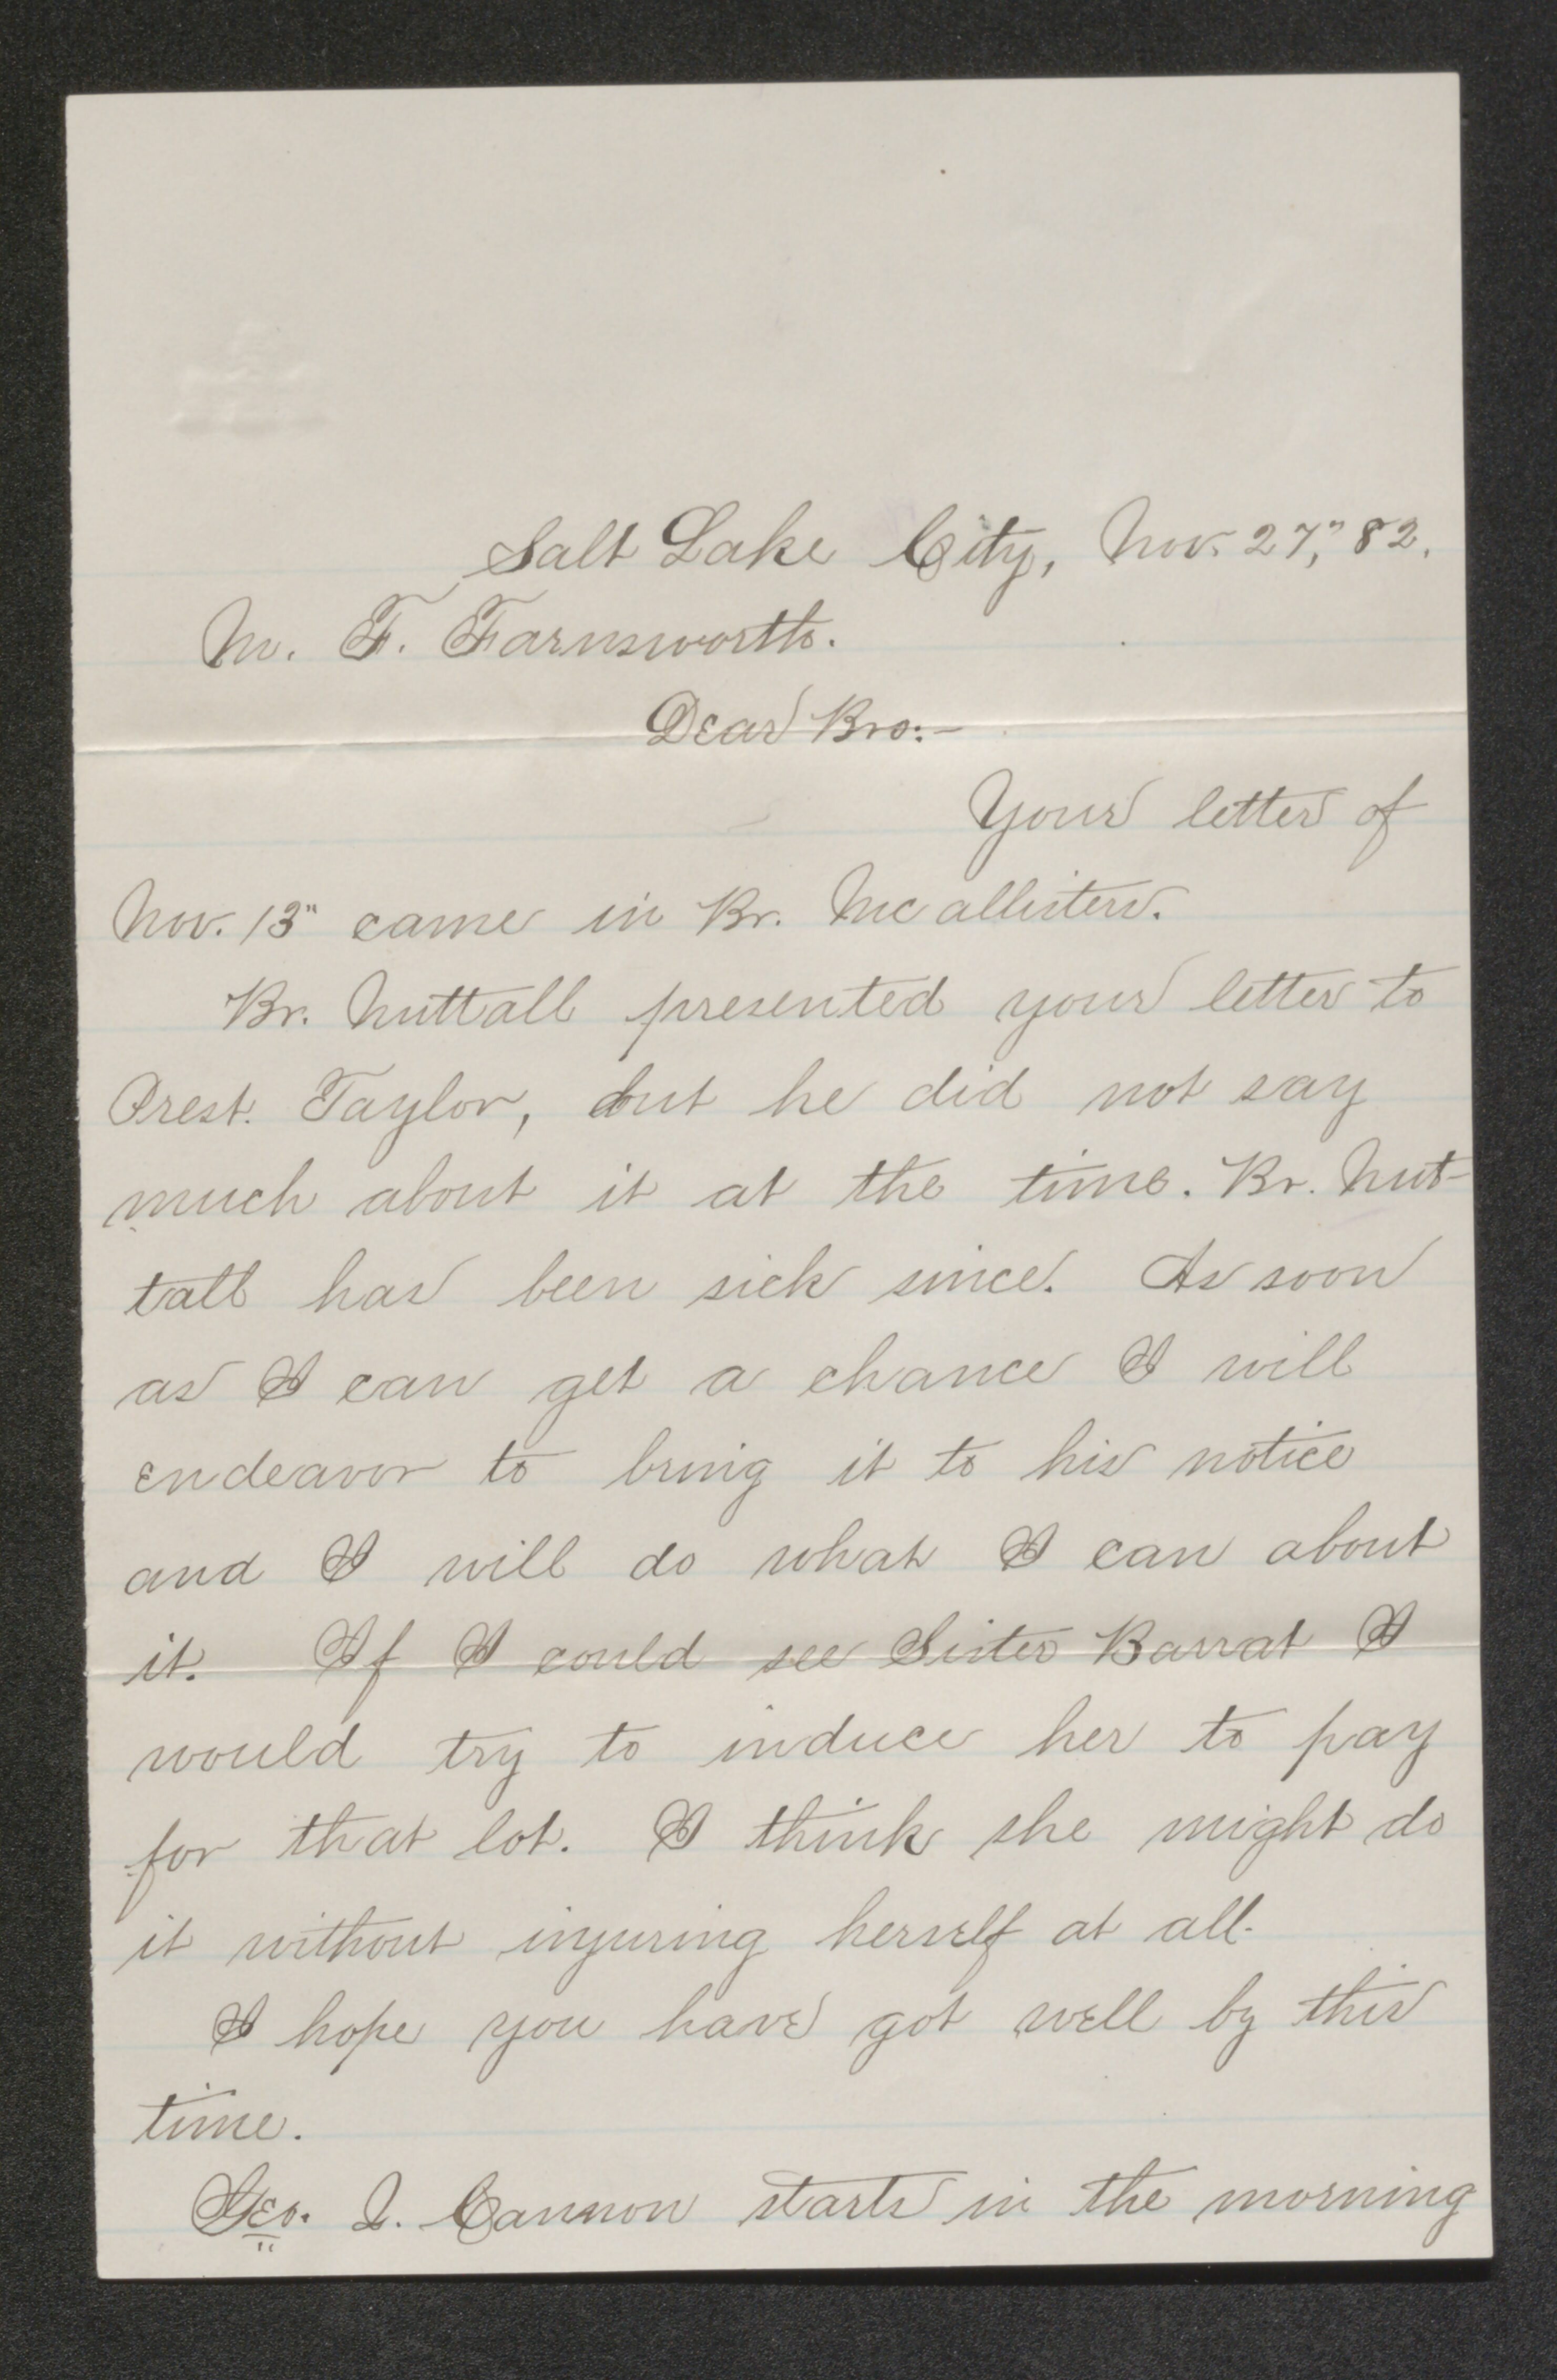 Salt Lake City, Nov. 27," 82.
M. F. Farnsworth.
Dear Bro:—
Your letter of
Nov. 13" came in Br. McAllisters.
Br. Nuttall presented your letter to
Prest. Taylor, but he did not say
much about it at the time. Br. Nut-
tall has been sick since. As soon
as I can get a chance I will
endeavor to bring it to his notice
and I will do what I can about
it. If I could see Sister Barrat I
would try to induce her to pay
for that lot. I think she might do
it without injuring herself at all.
I hope you have got well by this
time.
Geo. Q. Cannon starts in the morning